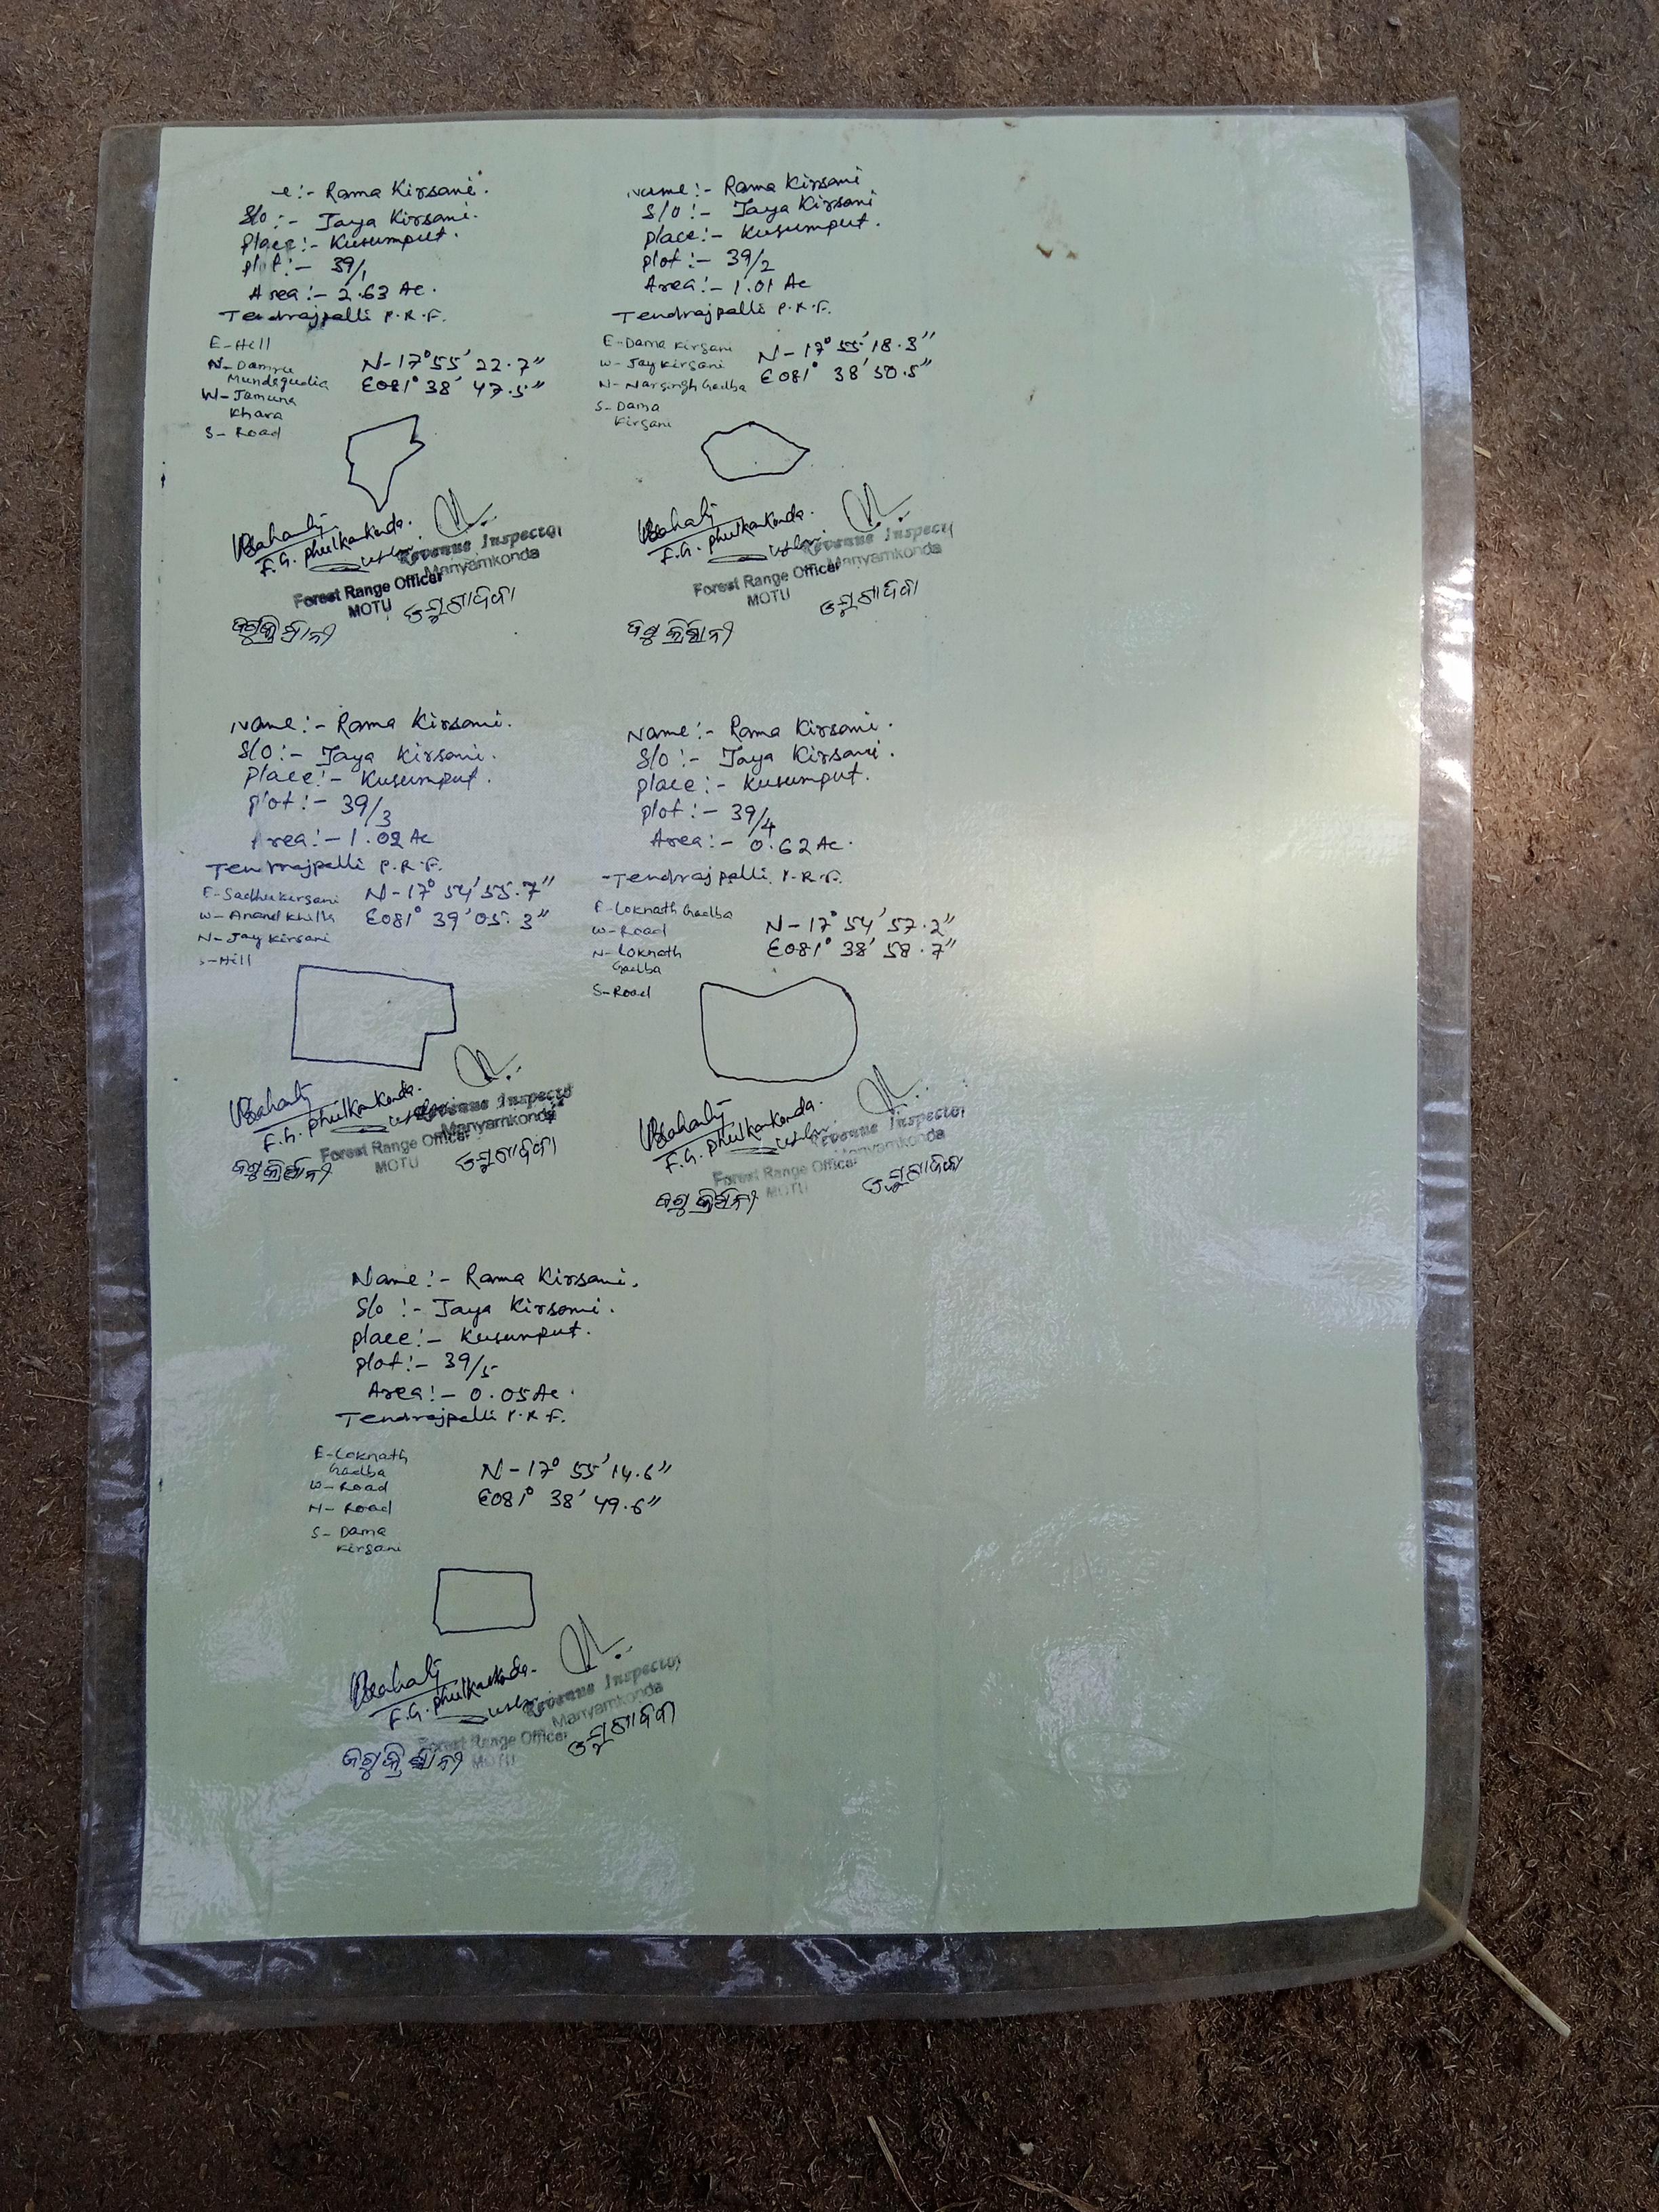 e:- Rama Kirsani.
S/o:- Jaya Kirsani.
place:- Kusumput.
plot:- 39/1
Area:- 2.63 Ac.
Tendrajpalli P.R.F.
E-Hill
N-Damru
Mundagudia
W-Jamuna
Khara
S- Road
N-17°55'22.7"
E081°38'47.5"
F.G. Phulkankonda.
Revenue Inspector
Manyamkonda
Forest Range Officer
MOTU
Name:- Rama Kirsani
S/o:- Jaya Kirsani
place:- Kusumput.
plot:- 39/2
Area:- 1.01 Ac
Tendrajpalli P.R.F.
E-Dama Kirsani
W-Jay Kirsani
N-Narsingh Gadba
S-Dama
Kirsani
N-17°55'18.3"
E081°38'50.5"
F.G. Phulkankonda.
Revenue Inspector
Manyamkonda
Forest Range Officer
MOTU
Name:- Rama Kirsani.
S/o:- Jaya Kirsani.
place:- Kusumput.
plot:- 39/3
Area:- 1.02 Ac
Tendrajpalli P.R.F.
E-Sadhu Kirsani
W-Anand Khilla
N-Jay Kirsani
S-Hill
N-17°54'55.7"
E081°39'05.3"
F.G. Phulkankonda.
Revenue Inspector
Manyamkonda
Forest Range Officer
MOTU
Name:- Rama Kirsani.
S/o:- Jaya Kirsani.
place:- Kusumput.
plot:- 39/4
Area:- 0.62 Ac.
Tendrajpalli P.R.F.
E-Loknath Gadba
W-Road
N-Loknath
Gadba
S-Road
N-17°54'57.2"
E081°38'58.7"
F.G. Phulkankonda.
Revenue Inspector
Manyamkonda
Forest Range Officer
MOTU
Name:- Rama Kirsani.
S/o:- Jaya Kirsani.
place:- Kusumput.
plot:- 39/5
Area:- 0.05 Ac.
Tendrajpalli P.R.F.
E-Loknath
Gadba
W-Road
N-Road
S-Dama
Kirsani
N-17°55'14.6"
E081°38'49.6"
F.G. Phulkankonda.
Revenue Inspector
Manyamkonda
Forest Range Officer
MOTU